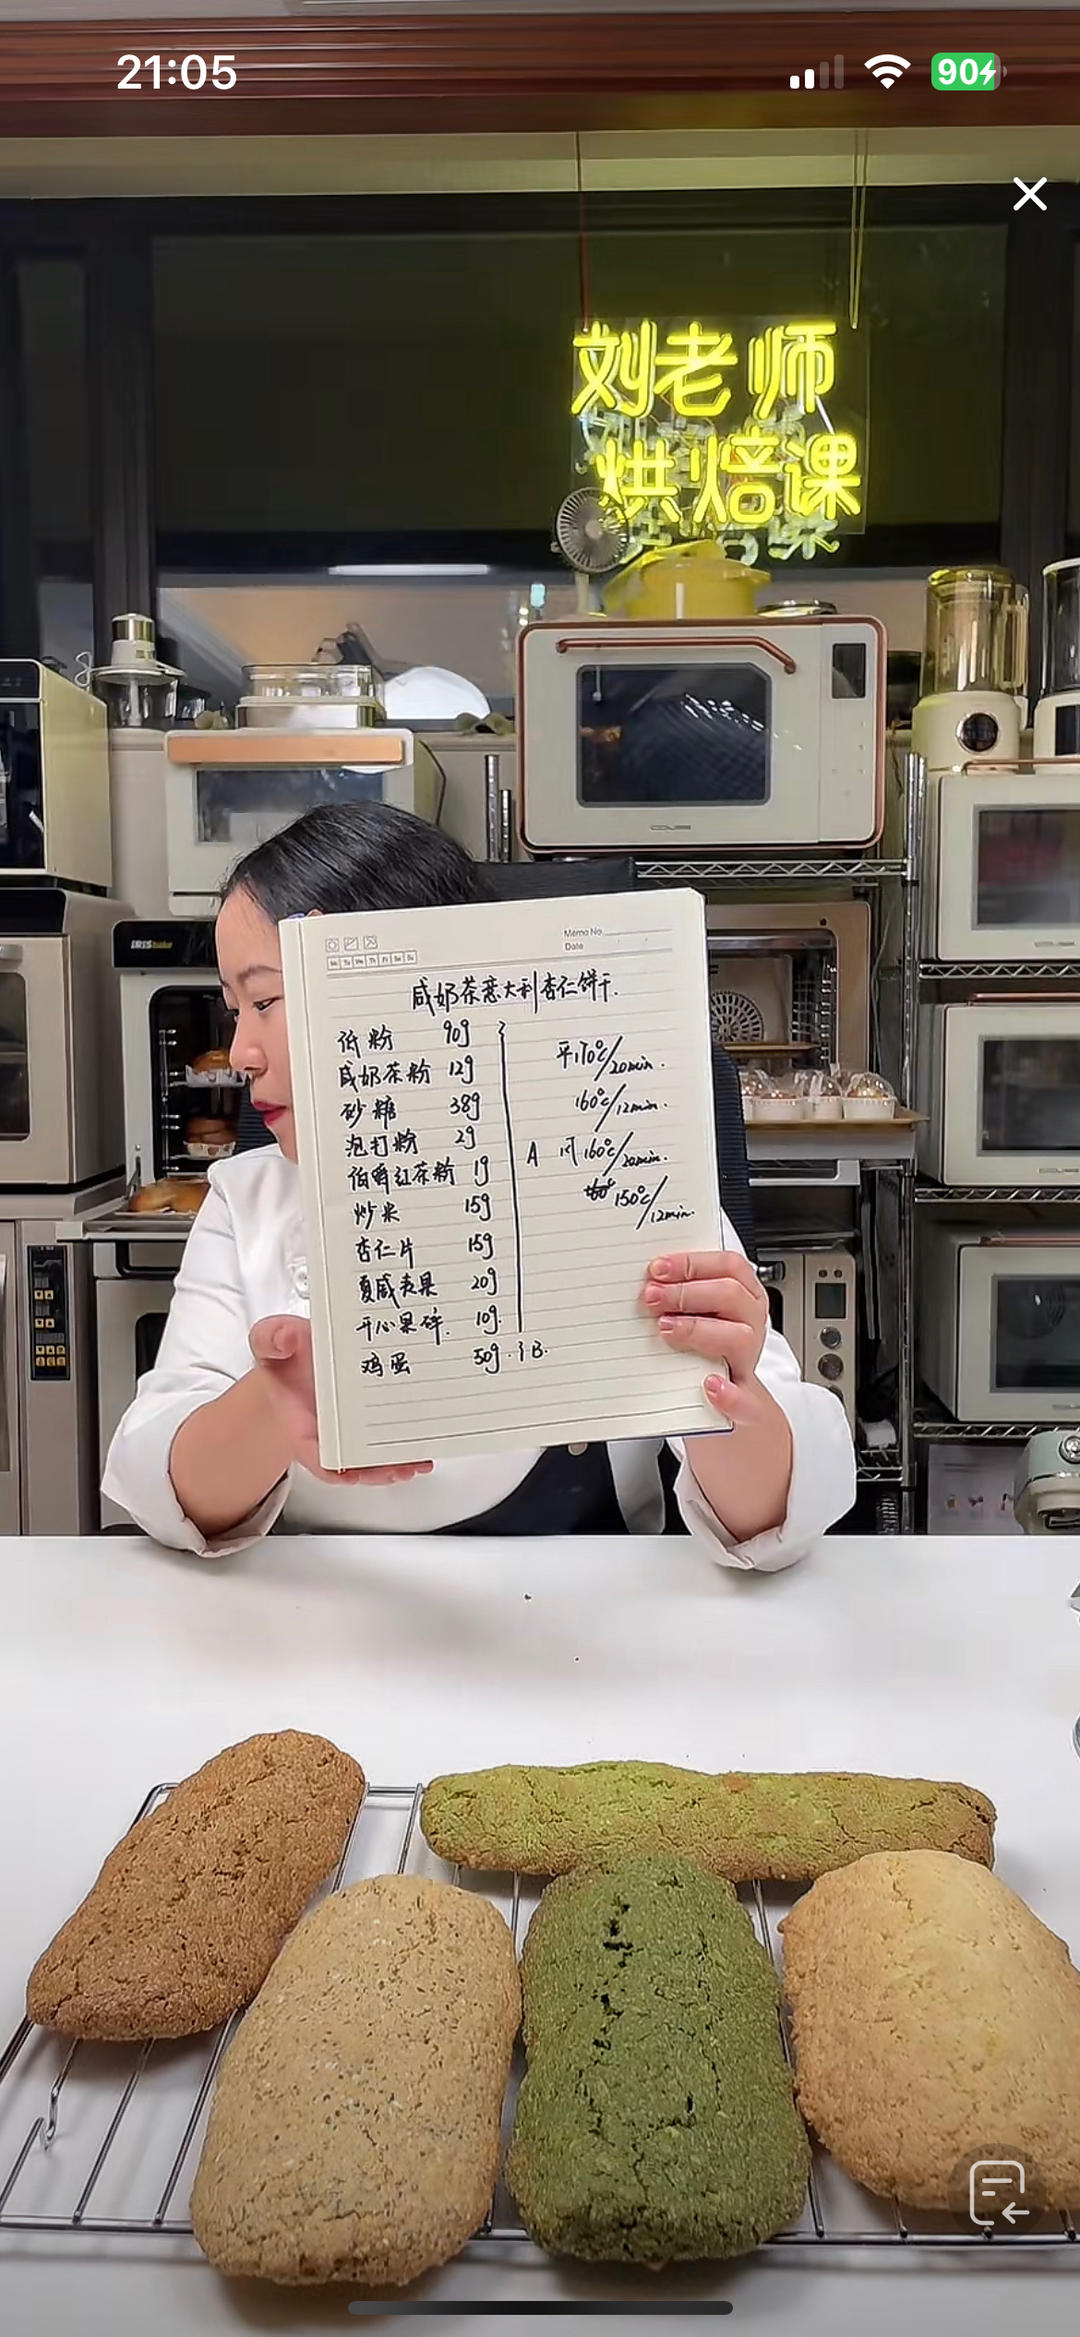 21:05
90
刘老师
烘焙课
IRIS bake
Memo No.
Date
Mo Tu We Th Fr Sa Su
咸奶茶意大利杏仁饼干.
低粉 90g
咸奶茶粉 12g
砂糖 38g
泡打粉 2g
伯爵红茶粉 1g
炒米 15g
杏仁片 15g
夏威夷果 20g
开心果碎. 10g.
鸡蛋 50g. } B.
平170℃/20min.
160℃/12min.
A 风160℃/20min.
150℃/12min.